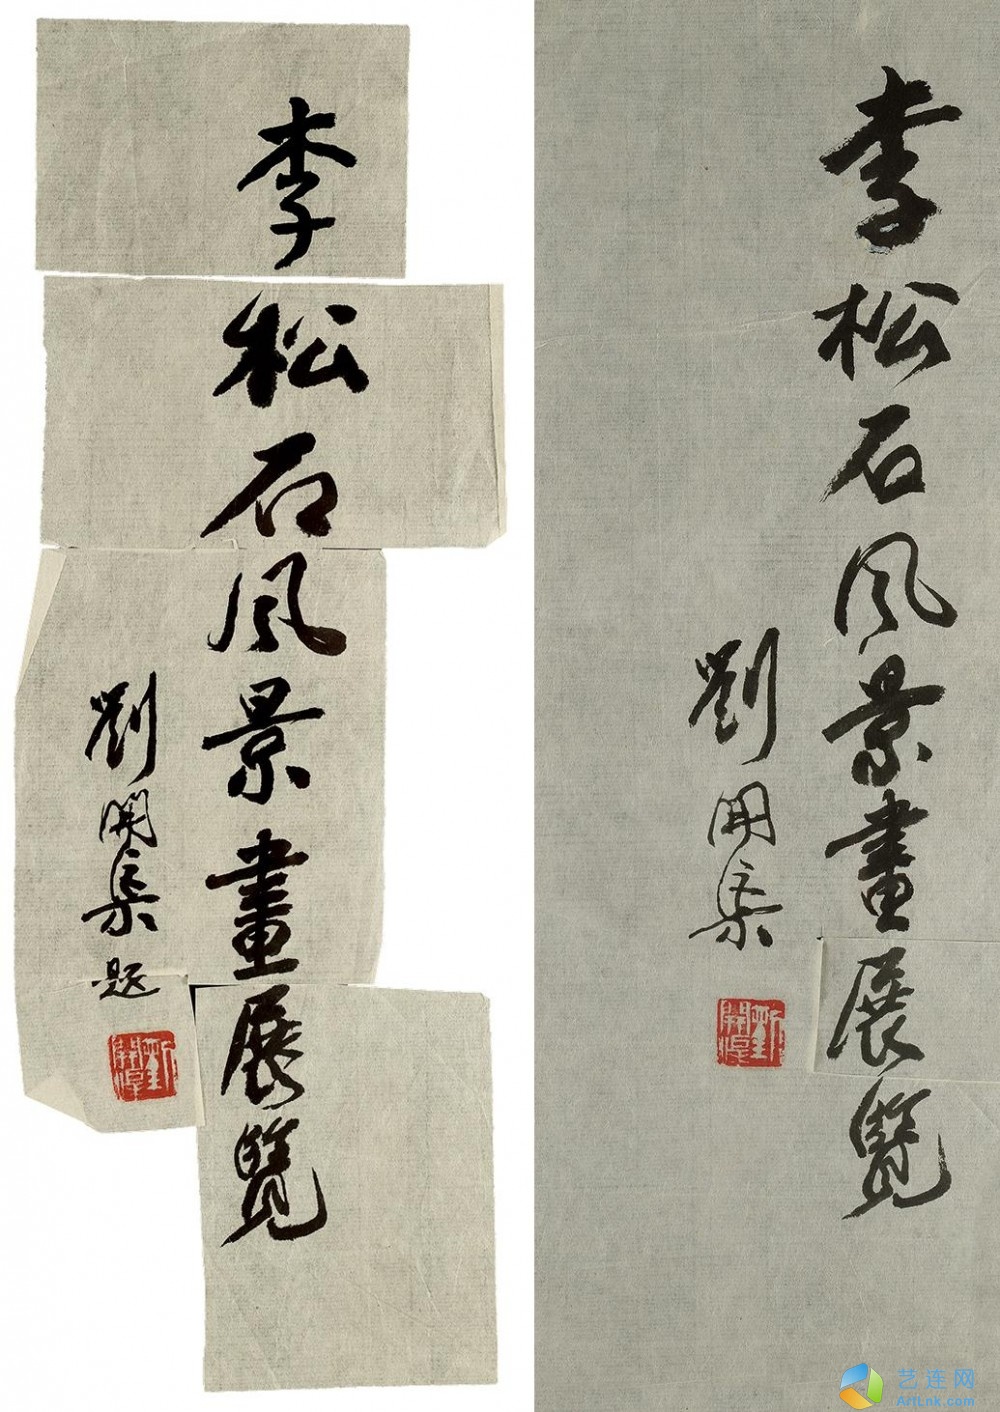 李松石风景畫展览
劉開渠题
劉開渠
李松石风景畫展览
劉開渠
劉開渠
艺连网
ArtLnk.com